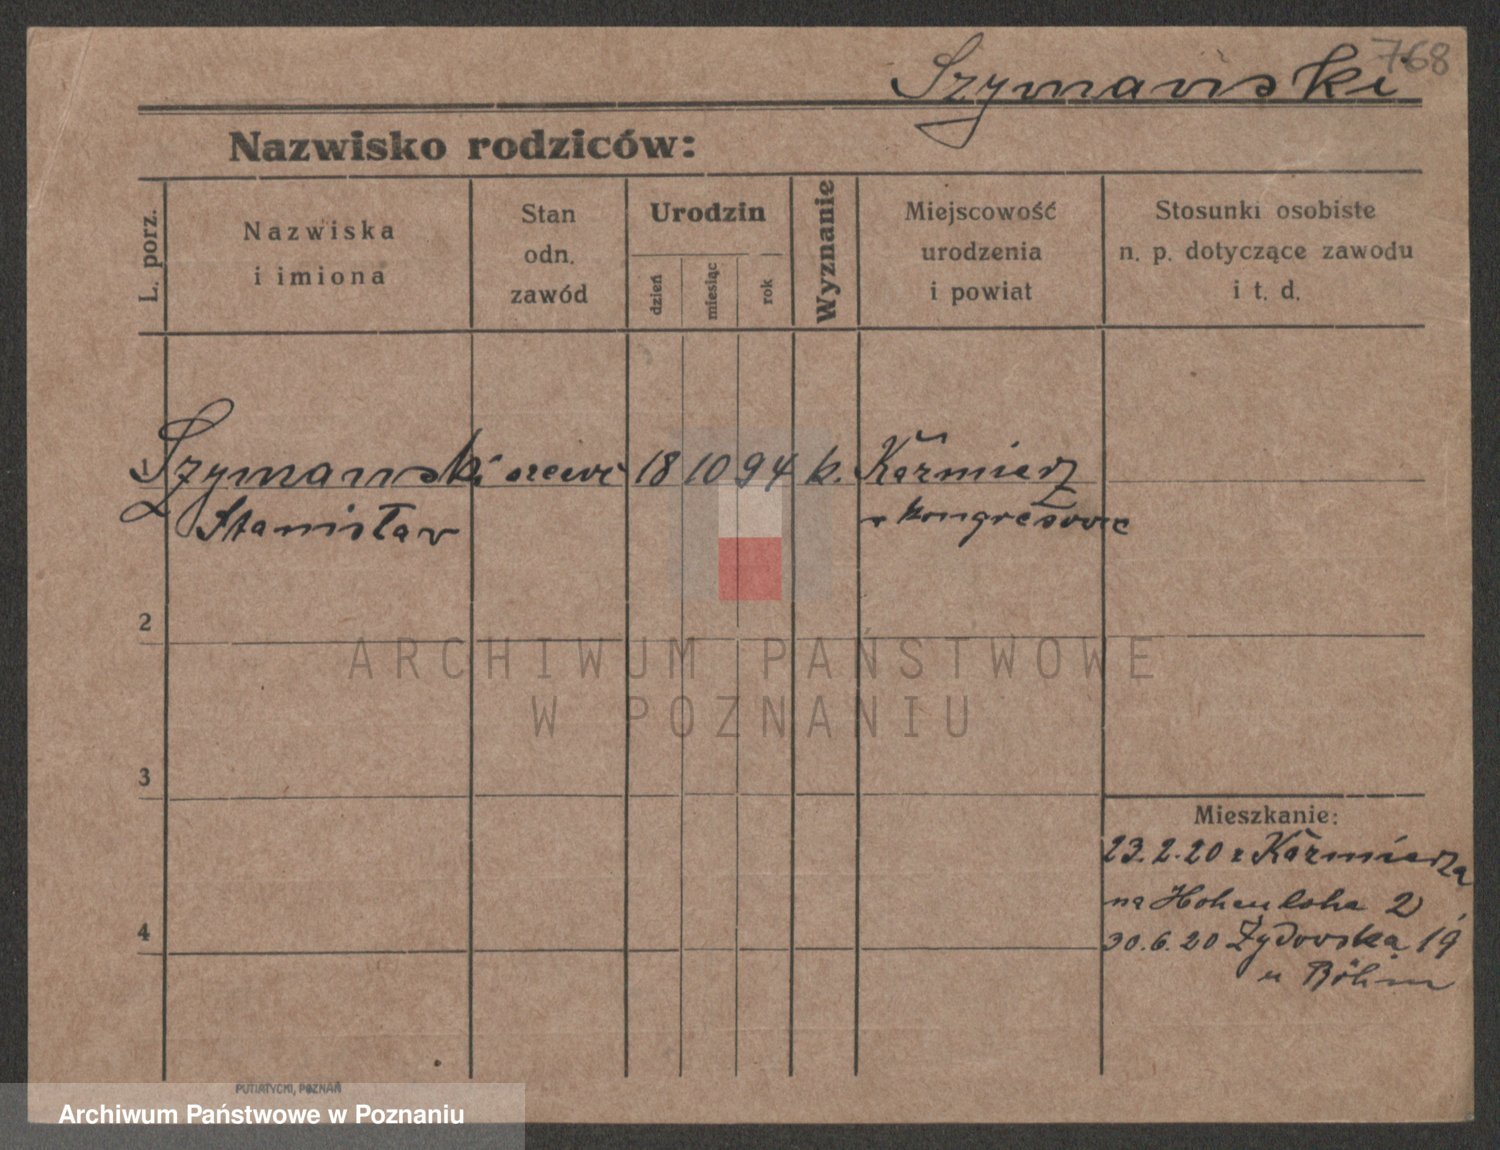 768
Szymanski
Nazwisko rodziców:
L. porz.
Nazwiska
i imiona
Stan
odn.
zawód
Urodzin
dzień
miesiąc
rok
Wyznanie
Miejscowość
urodzenia
i powiat
Stosunki osobiste
n. p. dotyczące zawodu
i t. d.
Szymanski szewc 18 10 94 k. Kaźmierz
Stanisław
2
3
4
Mieszkanie:
23.2.20 z Kaźmierza
na Hohenlohe 2
30.6.20 Żydowska 19
u Böhm
PUTIATYCKI, POZNAŃ
ARCHIWUM PAŃSTWOWE
W POZNANIU
Archiwum Państwowe w Poznaniu